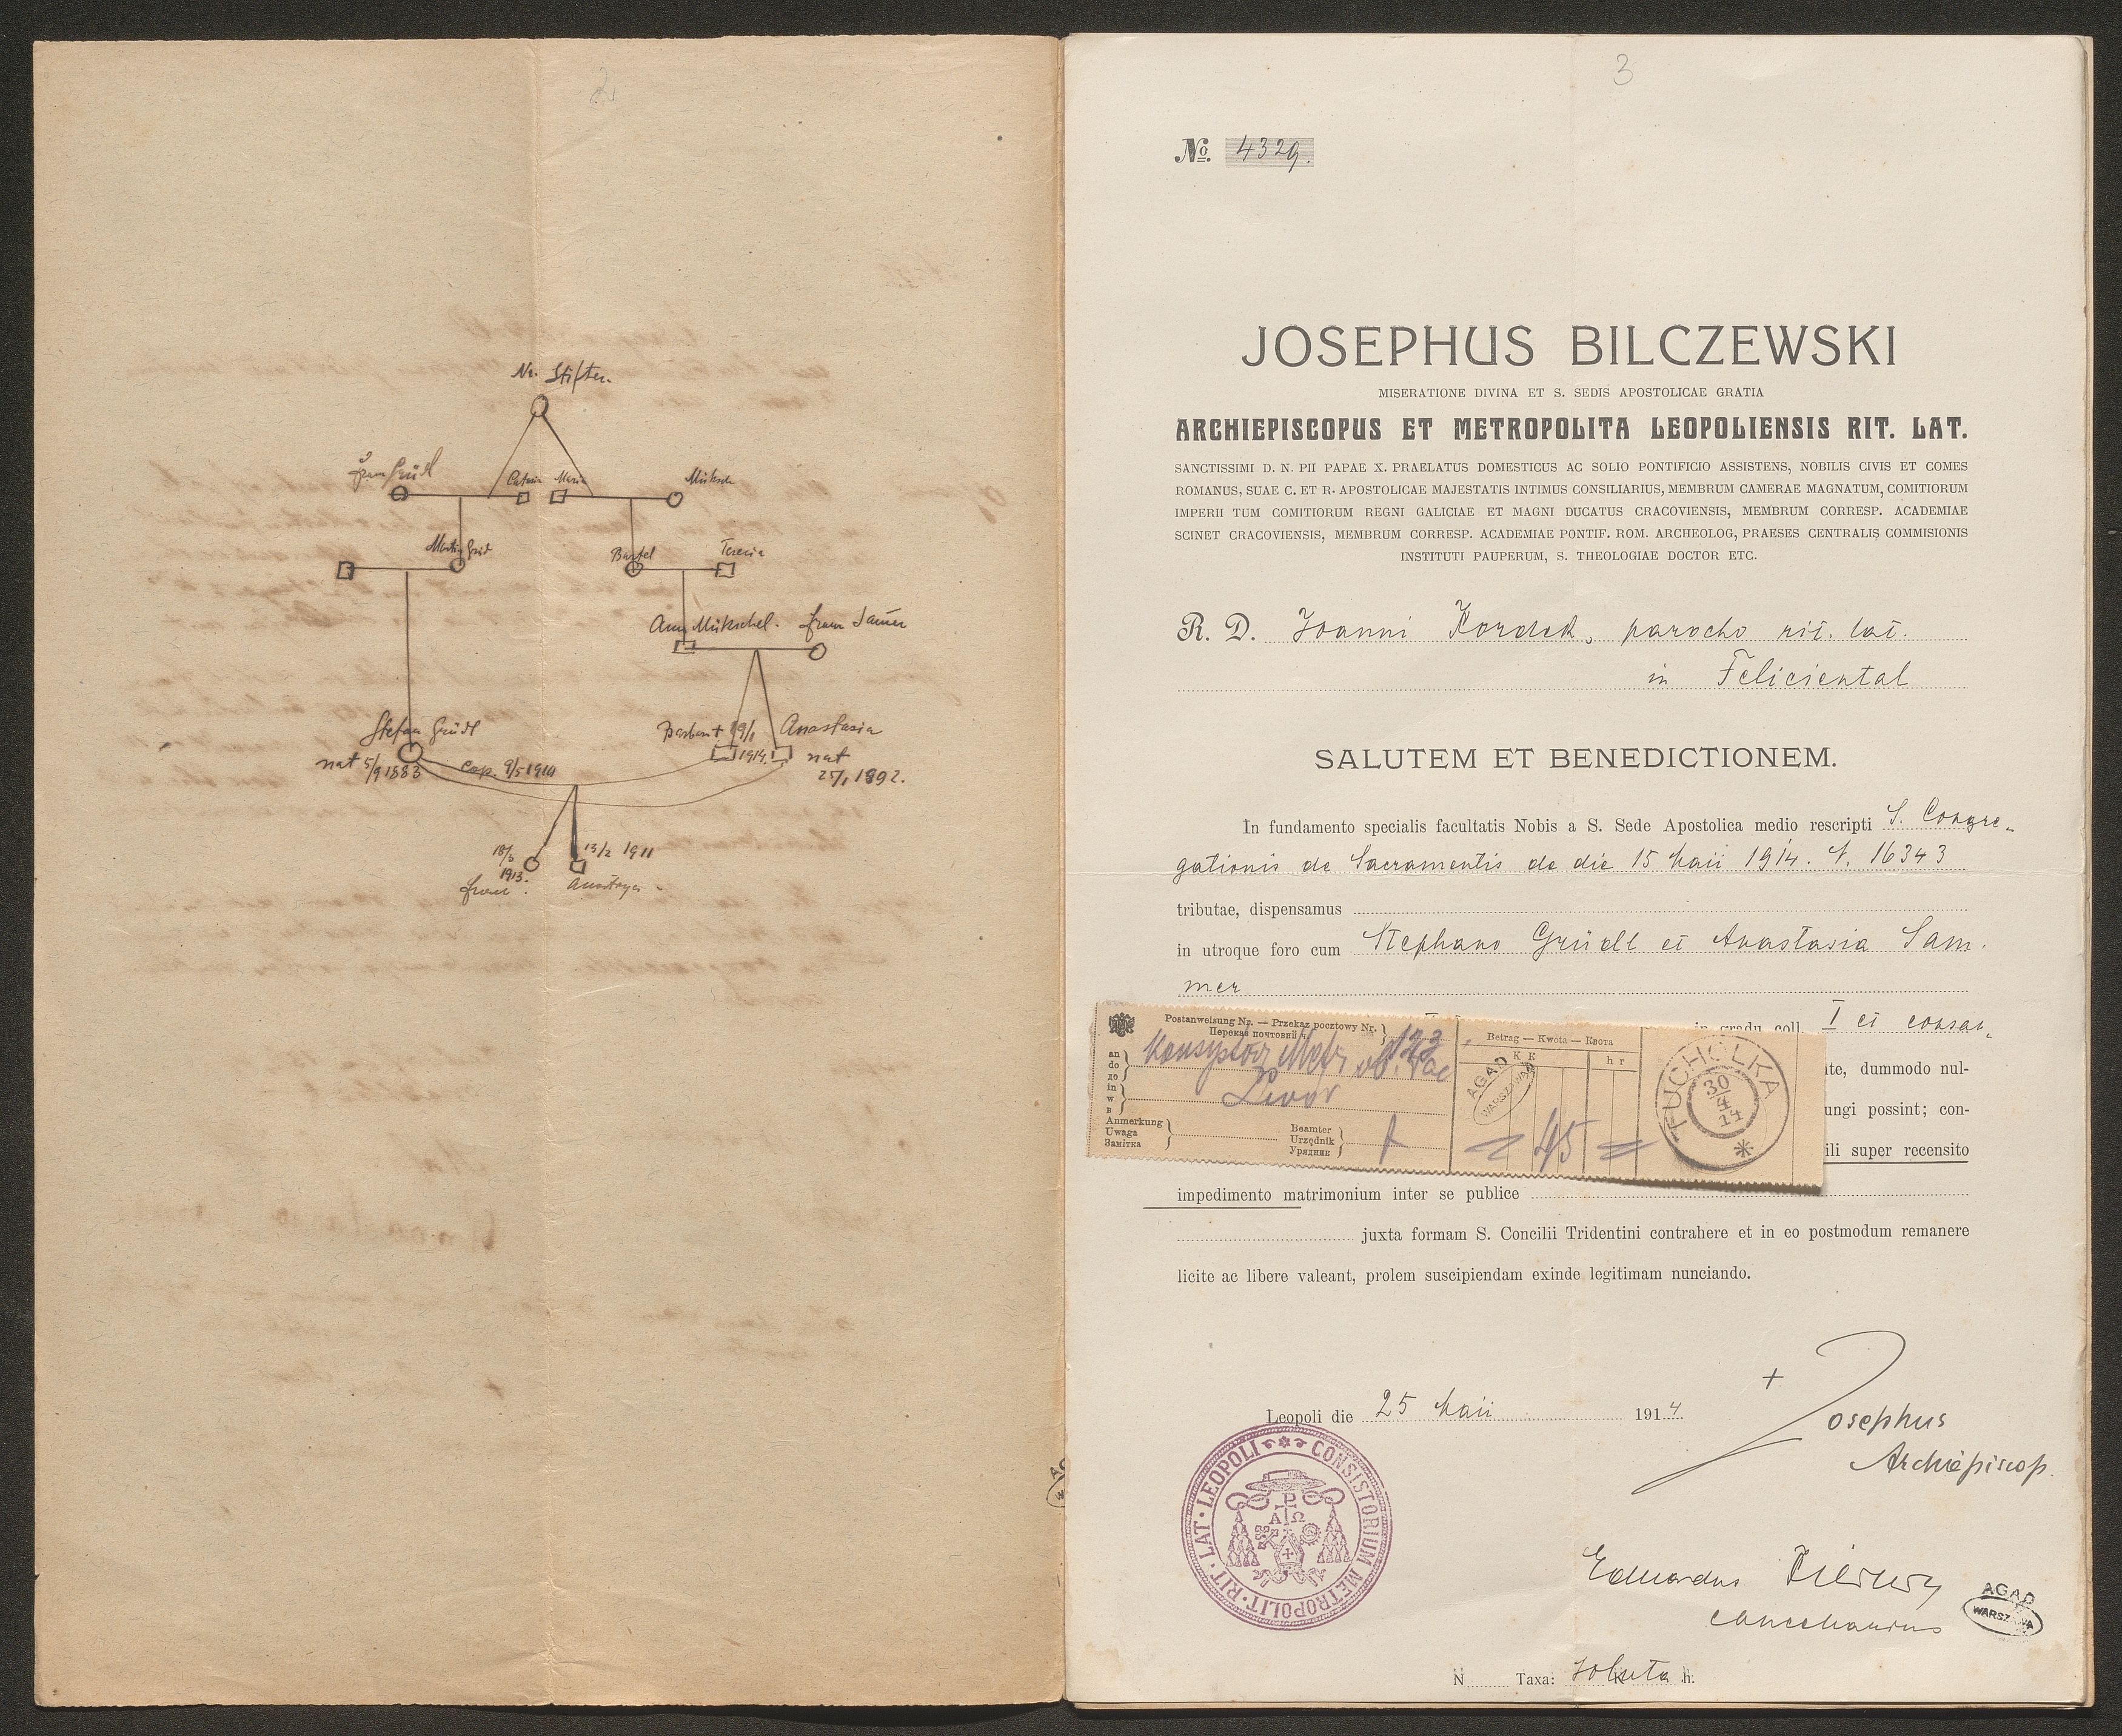 2
Nr. Stifter.
Franz Gründl
Catarin Maria Mütschel
Martin Gründ
Bartel Teresia
Anna Mütschel. Franz Samer
Stefan Gründl
nat 5/9 1883
Cop. 9/5 1910
Barbara + 19/1 1914.
Anastasia
nat
25/1 1892.
18/3
1913.
13/2 1911
Franz.
3
No. 4329.
JOSEPHUS BILCZEWSKI
MISERATIONE DIVINA ET S. SEDIS APOSTOLICAE GRATIA
ARCHIEPISCOPUS ET METROPOLITA LEOPOLIENSIS RIT. LAT.
SANCTISSIMI D. N. PII PAPAE X. PRAELATUS DOMESTICUS AC SOLIO PONTIFICIO ASSISTENS, NOBILIS CIVIS ET COMES
ROMANUS, SUAE C. ET R. APOSTOLICAE MAJESTATIS INTIMUS CONSILIARIUS, MEMBRUM CAMERAE MAGNATUM, COMITIORUM
IMPERII TUM COMITIORUM REGNI GALICIAE ET MAGNI DUCATUS CRACOVIENSIS, MEMBRUM CORRESP. ACADEMIAE
SCINET CRACOVIENSIS, MEMBRUM CORRESP. ACADEMIAE PONTIF. ROM. ARCHEOLOG, PRAESES CENTRALIS COMMISIONIS
INSTITUTI PAUPERUM, S. THEOLOGIAE DOCTOR ETC.
R. D. Joanni Kordek, parocho rit. lat.
in Feliciental
SALUTEM ET BENEDICTIONEM.
In fundamento specialis facultatis Nobis a S. Sede Apostolica medio rescripti S. Congre-
gationis de Sacramentis de die 15 Maii 1914. N. 16343
tributae, dispensamus
in utroque foro cum Stephano Gründl et Anastasia Sam-
mer
in gradu coll. I et consan-
te, dummodo nul-
ungi possint; con-
ili super recensito
Postanweisung Nr. — Przekaz pocztowy Nr.
Переказ почтовий ч.
123
an
do
до
in
w
в
Lwów
Anmerkung
Uwaga
Замітка
Beamter
Urzędnik
Урядник
Betrag — Kwota — Квота
K K
h r
= 45 =
AGAD
WARSZAWA
TUCHOLKA
30
4
14
impedimento matrimonium inter se publice
juxta formam S. Concilii Tridentini contrahere et in eo postmodum remanere
licite ac libere valeant, prolem suscipiendam exinde legitimam nunciando.
Leopoli die 25 Maii 1914.
+ Josephus
Archiepiscop.
CONSISTORIUM METROPOLIT. RIT. LAT. LEOPOLI
P
A Ω
Eduardus
cancellarius
AGAD
WARSZAWA
N Taxa: soluta h.